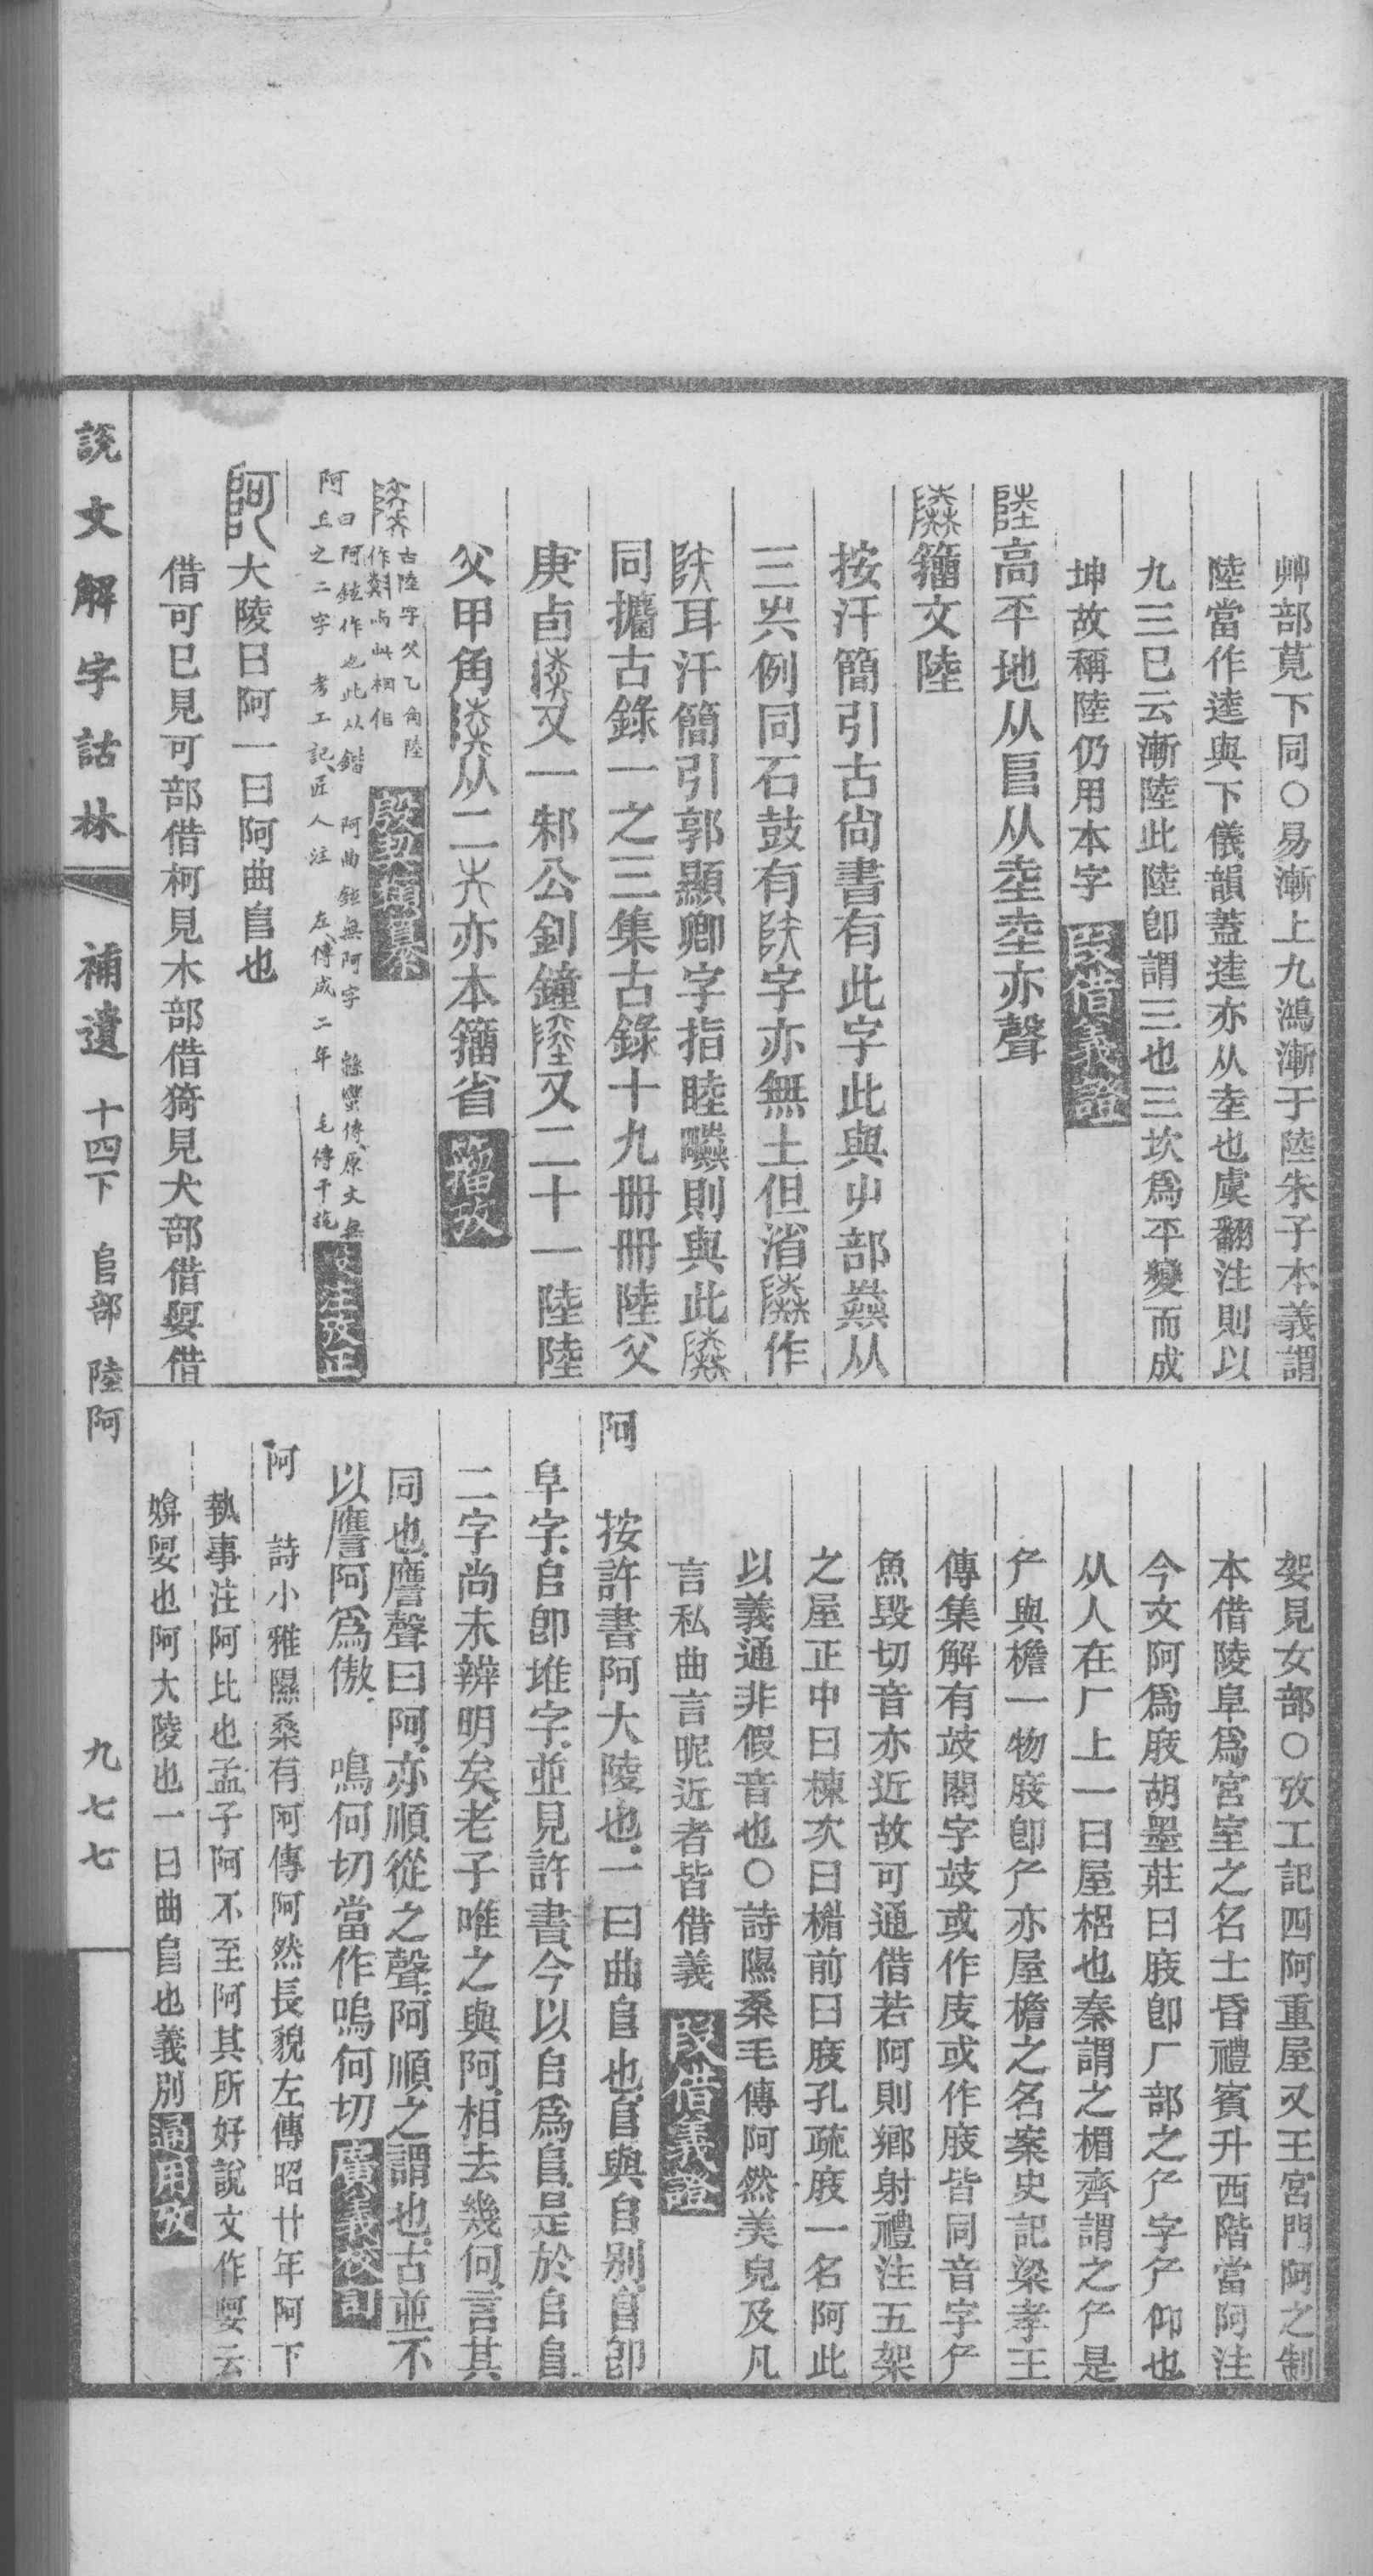 艸部莧下同○易漸上九鴻漸于陸朱子本義謂
陸當作逵與下儀韻蓋逵亦从坴也虞翻注則以
九三已云漸陸此陸卽謂三也三坎爲平變而成
坤故稱陸仍用本字 叚借義證
陸高平地从𨸏从坴坴亦聲
籒文陸
按汗簡引古尙書有此字此與屮部从
三例同石鼓有字亦無土但省作
耳汗簡引郭顯卿字指睦則與此
同攈古錄一之三集古錄十九冊冊陸父
庚卣又一邾公釗鐘又二十一陸陸
父甲角从二亦本籒省 籒攷
古陸字父乙角陸
作與此相侣 說文古籒
阿曰阿鉉作也此从鍇 阿曲鉉無阿字 縣蠻傳原文無
丘之二字 考工記匠人注 左傳成二年 毛傳干旄 段注攷正
阿大陵曰阿一曰阿曲𨸏也
借可已見可部借柯見木部借猗見犬部借娿借
妿見女部○攷工記四阿重屋又王宮門阿之制
本借陵阜爲宮室之名士昏禮賓升西階當阿注
今文阿爲庪胡墨莊曰庪卽厂部之厃字厃仰也
从人在厂上一曰屋梠也秦謂之楣齊謂之厃是
厃與檐一物庪卽厃亦屋檐之名案史記梁孝王
傳集解有攱閣字攱或作庋或作庪皆同音字厃
魚毀切音亦近故可通借若阿則鄉射禮注五架
之屋正中曰棟次曰楣前曰庪孔疏庪一名阿此
以義通非假音也○詩隰桑毛傳阿然美皃及凡
言私曲言昵近者皆借義 叚借義證
阿 按許書阿大陵也一曰曲𨸏也𨸏與𠂤别𨸏卽
阜字𠂤卽堆字並見許書今以𠂤爲𨸏是於𠂤𨸏
二字尚未辨明矣老子唯之與阿相去幾何言其
同也譍聲曰阿亦順從之聲阿順之謂也古並不
以譍阿爲傲 鳴何切當作嗚何切 廣義校訂
阿 詩小雅隰桑有阿傳阿然長貌左傳昭廿年阿下
執事注阿比也孟子阿不至阿其所好說文作娿云
媕娿也阿大陵也一曰曲𨸏也義別 通用攷
說文解字詁林 補遺 十四下 𨸏部 陸阿 九七七